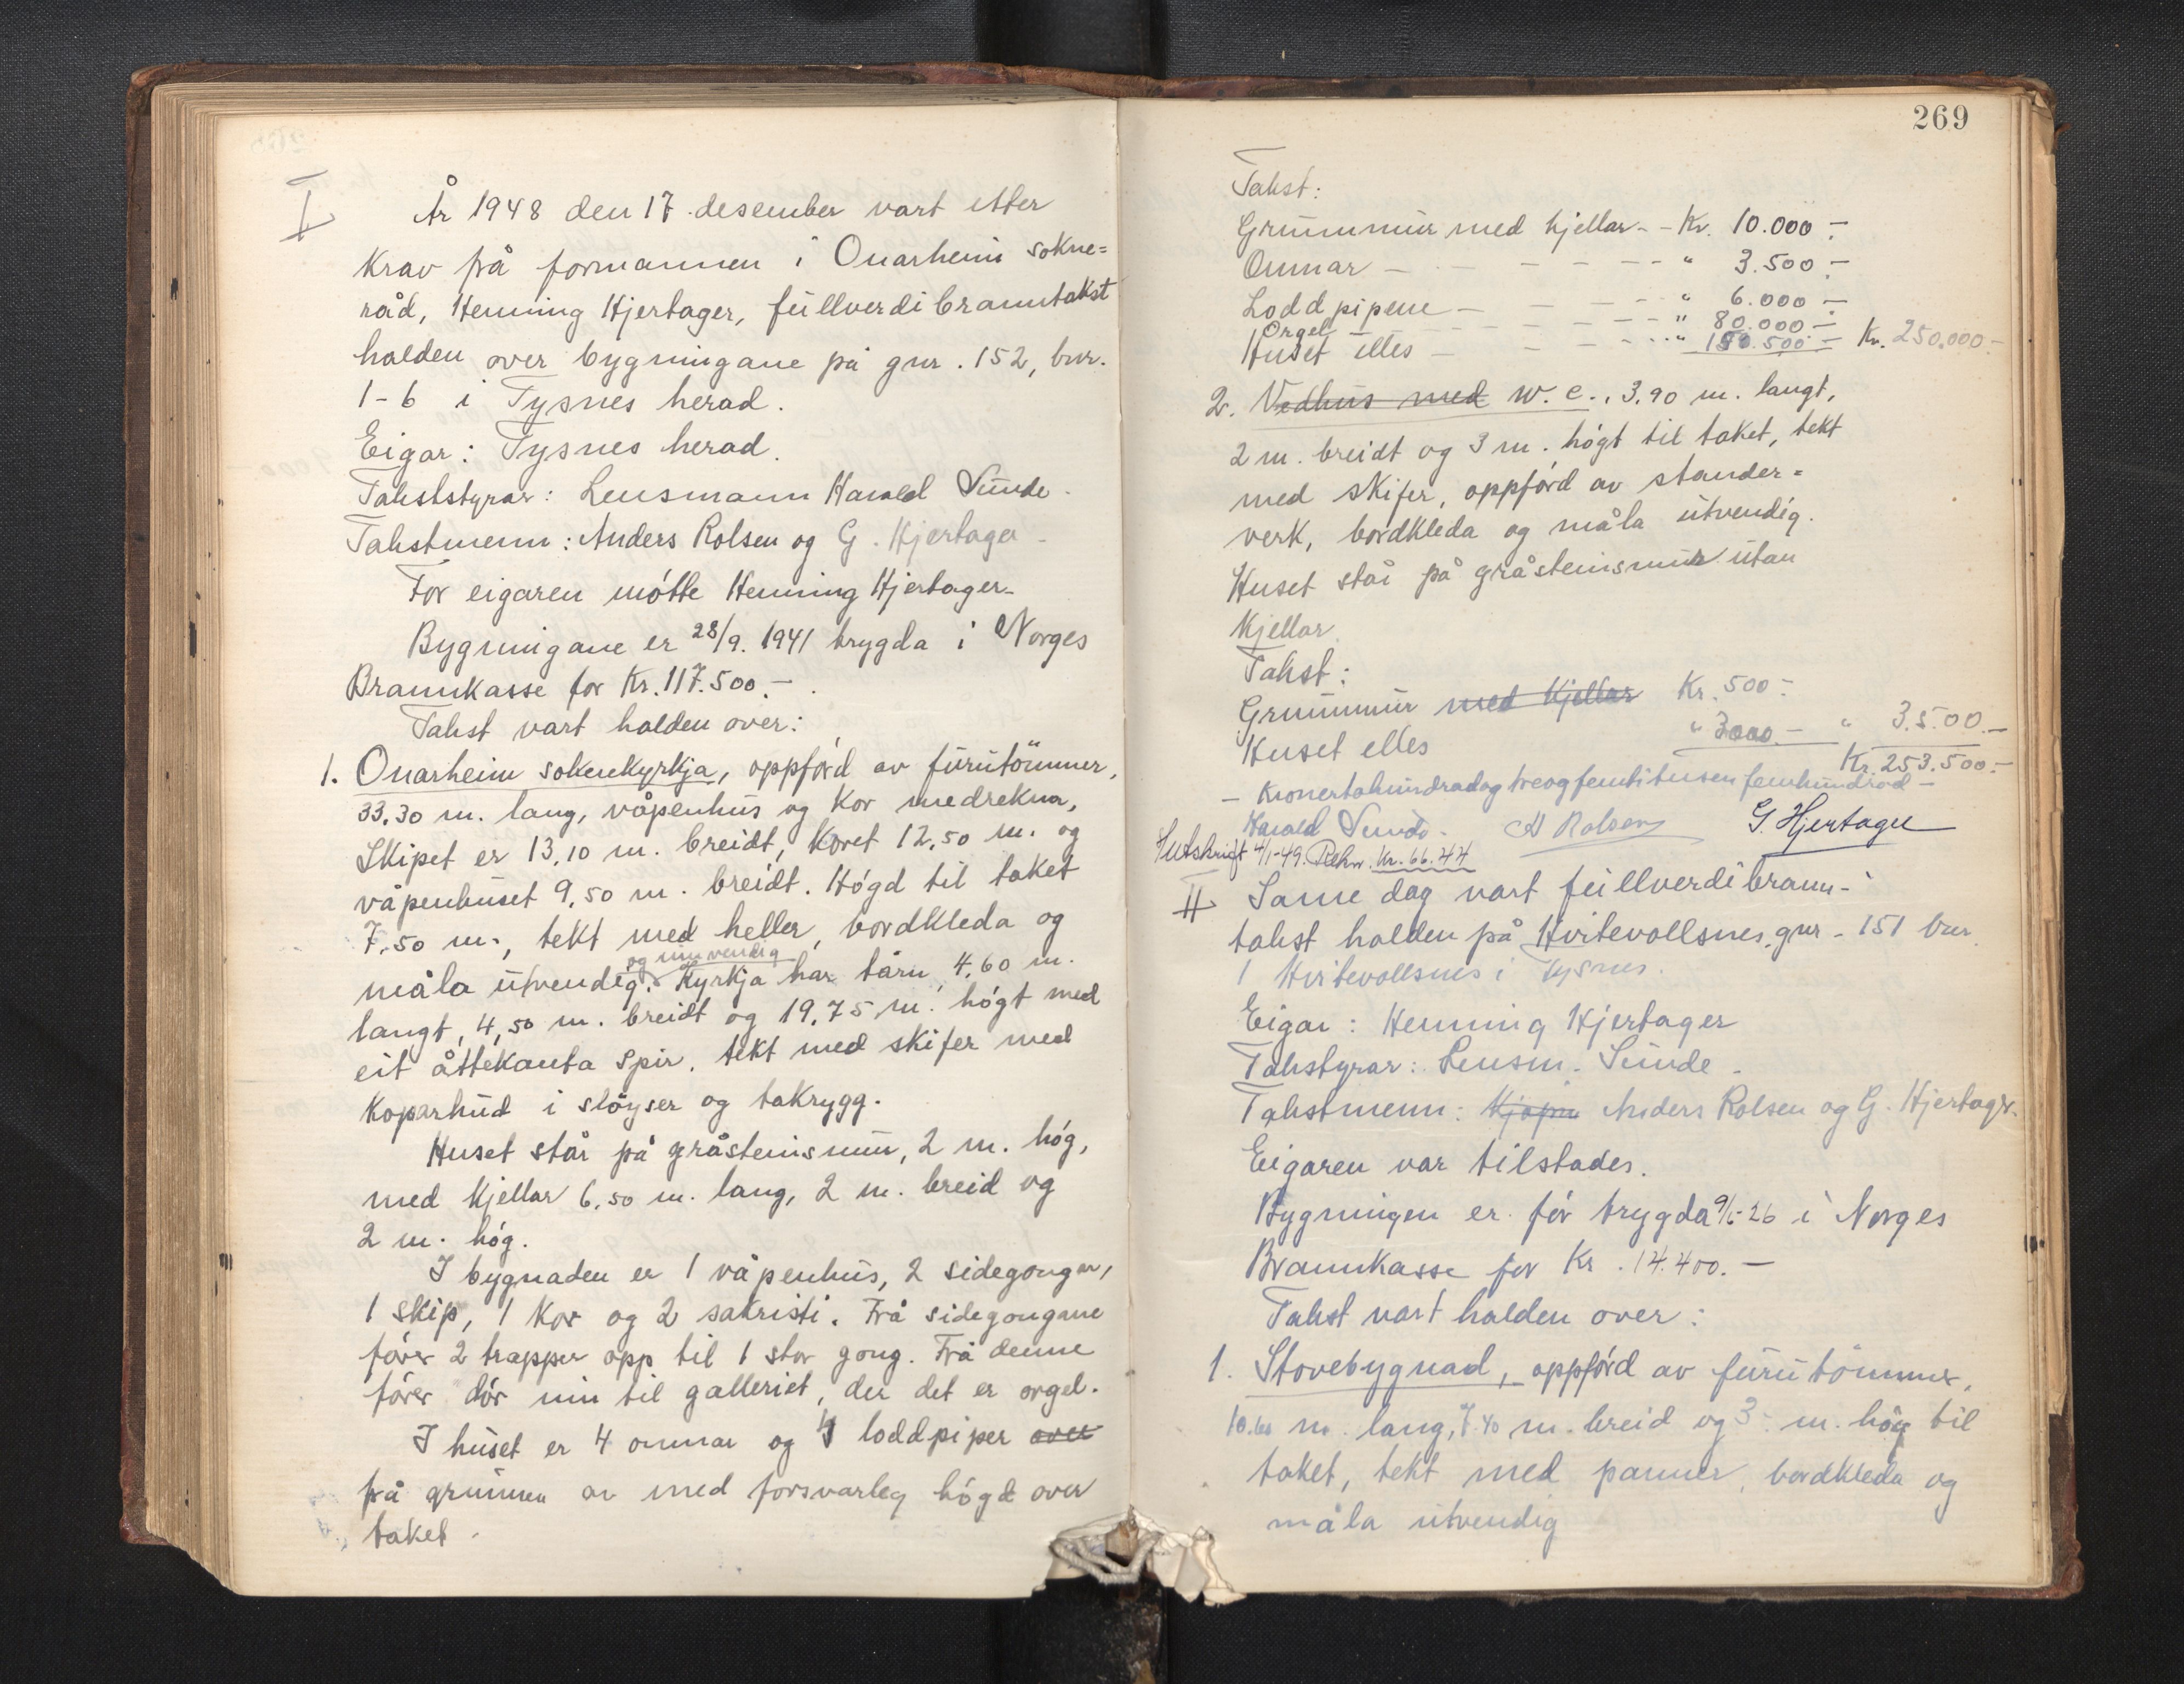 I
År 1948 den 17. desember vart etter
krav frå formannen i Onarheim sokne=
råd, Henning Hjertager, fullverdibranntakst
halden over bygningane på gnr. 152, bnr.
1-6 i Tysnes herad.
Eigar: Tysnes herad.
Takststyrar: Lensmann Harald Sunde.
Takstmenn: Anders Rolsen og G. Hjertager
For eigaren møtte Henning Hjertager.
Bygningane er 28/9. 1941 trygda i Norges
Brannkasse for Kr. 117.500.-
Takst vart halden over:
1. Onarheim soknekyrkja, oppførd av furutömmer,
33,30 m. lang, våpenhus og kor medrekna,
Skipet er 13,10 m. breidt, koret 12,50 m. og
våpenhuset 9,50 m. breidt. Høgd til taket
7,50 m., tekt med heller, bordkleda og
og innvendig
måla utvendig. Kyrkja har tårn, 4,60 m.
langt, 4,50 m. breidt og 19,75 m. høgt med
eit åttekanta spir, tekt med skifer med
koparhud i sløyser og takrygg.
Huset står på gråsteinsmur, 2 m. høg,
med kjellar 6,50 m. lang, 2 m. breid og
2 m. høg.
I bygnaden er 1 våpenhus, 2 sidegongar,
1 skip, 1 kor og 2 sakristi. Frå sidegongane
fører 2 trapper opp til 1 stor gong. Frå denne
fører dør inn til galleriet, der det er orgel.
I huset er 4 omnar og 4 loddpiper over
frå grunnen av med forsvarleg høgd over
taket.
269
Takst:
Grunnmur med kjellar - - Kr. 10.000.-
Omnar - - - - - " 3.500.-
Loddpipene - - - - " 6.000.-
Orgel - - - - - " 80.000.-
Huset elles - - - - " 150.500.- Kr. 250.000.-
2. Vedhus med W.C., 3,90 m. langt,
2 m. breidt og 3 m. høgt til taket, tekt
med skifer, oppførd av stander=
verk, bordkleda og måla utvendig.
Huset står på gråsteinsmur utan
kjellar.
Takst:
Grunnmur med kjellar Kr. 500.-
Huset elles " 3000.- " 3.500.-
Kr. 253.500.-
- Kronertohundradogtreogfemtitusenfemhundrad -
Harald Sunde. A Rolsen G. Hjertager
Utskrift 4/1-49. Rekn. Kr. 66.44
II Same dag vart fullverdibrann-
takst halden på Hvitevollsnes, gnr. 151 bnr.
1 Hvitevollsnes i Tysnes.
Eigar: Henning Hjertager
Takstyrar: Lensm. Sunde.
Takstmenn: Anders Rolsen og G. Hjertager.
Eigaren var tilstades.
Bygningen er før trygda 9/5-26 i Norges
Brannkasse for Kr. 14.400.-
Takst vart halden over:
1. Stovebygnad, oppførd av furutömmer,
10.60 m. lang, 7.40 m. breid og 3- m. høg til
taket, tekt med panner, bordkleda og
måla utvendig